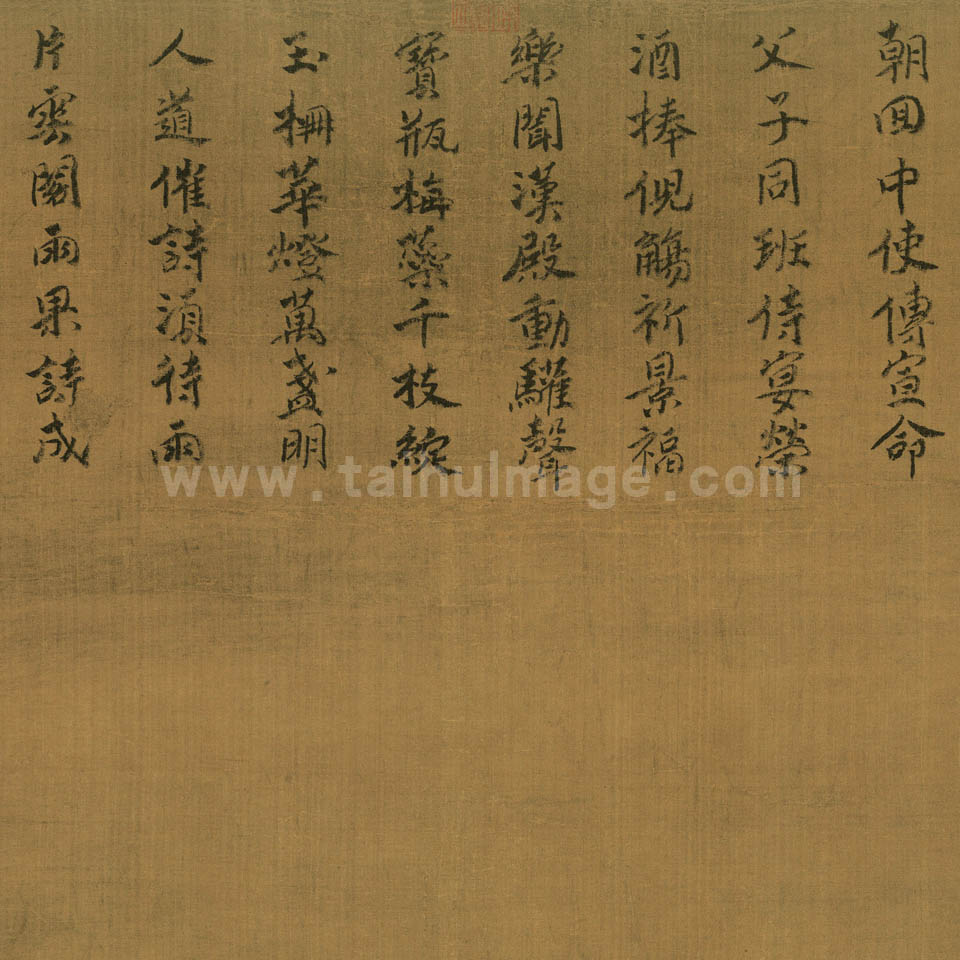 朝回中使傳宣命
父子同班侍宴榮
酒捧倪觴祈景福
樂聞漢殿動驩聲
寶瓶梅蘂千枝綻
玉柵華燈萬盞明
人道催詩須待雨
片雲閣雨果詩成
www.taihuImage.com